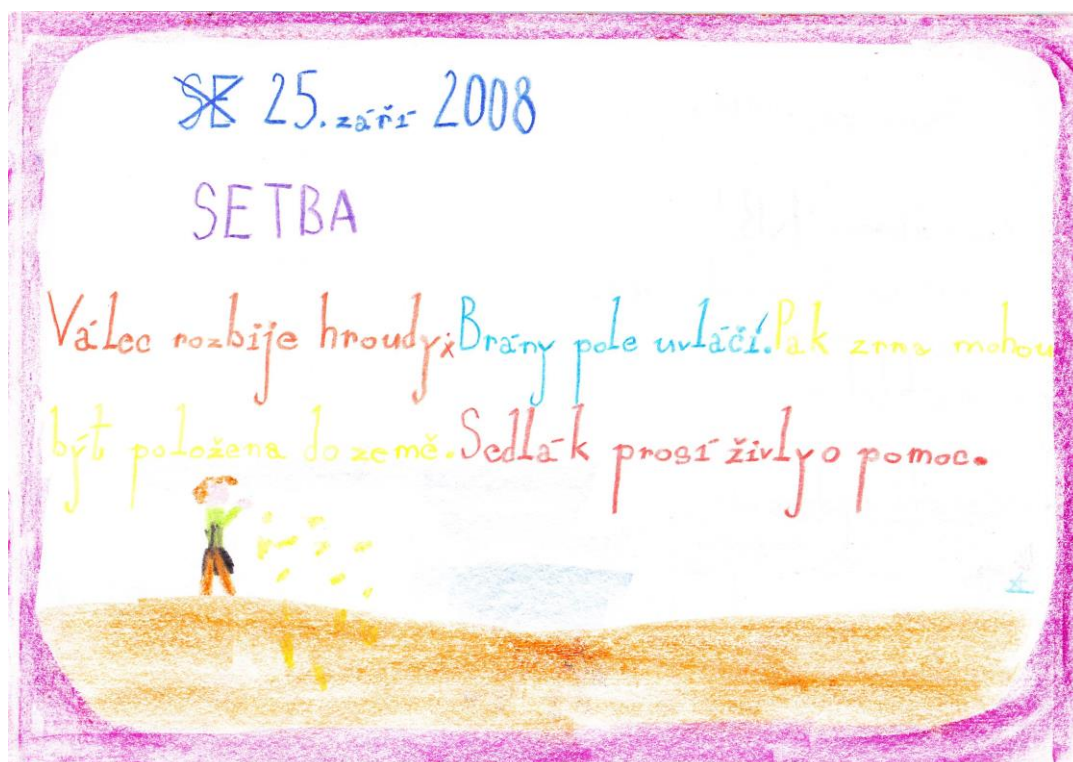 25. září 2008
SETBA
Válec rozbije hroudy. Brány pole uvláčí. Pak zrna mohou
být položena do země. Sedlák prosí živly o pomoc.